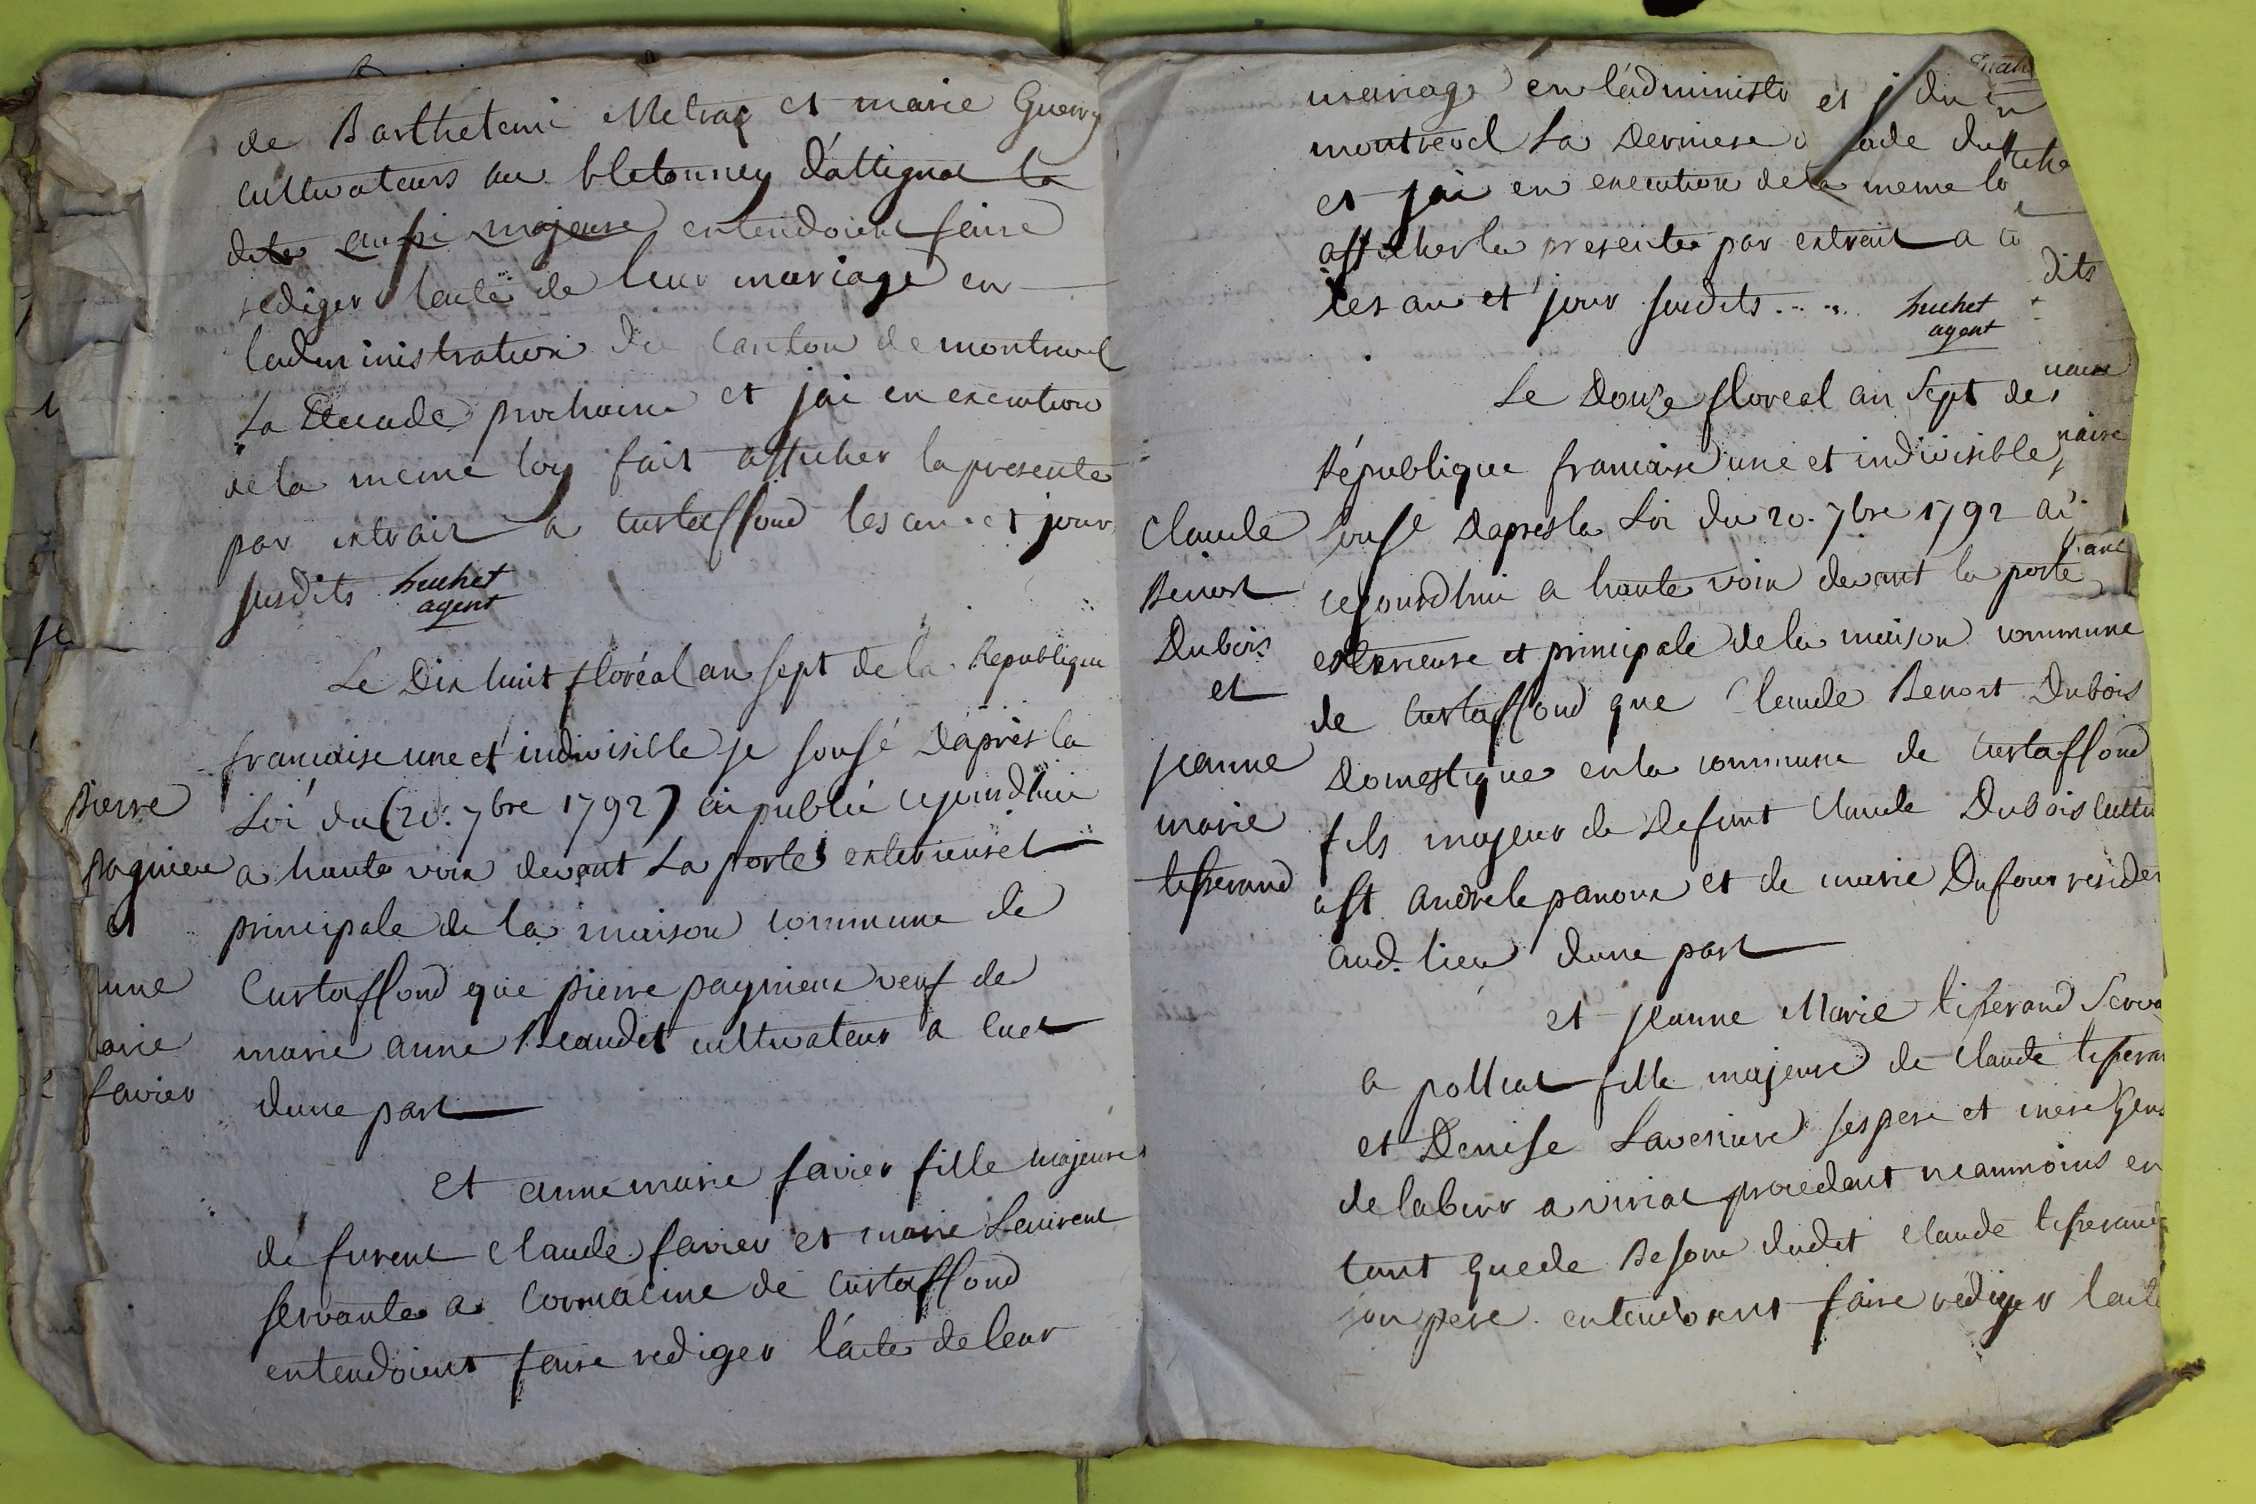 de Barthelemi Metraz et marie Guerry
cultivateurs au bletonney d'attignat la
dite aussi majeure entendoient faire
rediger lacte de leur mariage en
ladministration du canton de montrevel
La Decade prochaine et jai en execution
de la meme loy fait afficher la presente
par extrait a curtaffond les an et jour
susdits huchet
agent
Le Dix huit floréal an sept de la Republique
francaise une et indivisible je sousé D'après la
Loi du (20. 7bre 1792) ai publié cejourdhui
a haute voix devant La porte exterieure et
principale de la maison commune de
Curtaffond que pierre pagnieux veuf de
marie anne Beaudet cultivateur a cuet
dune part
Et anne marie favier fille majeure
de furent Claude favier et marie Laurent
servante a Cormacine de Curtaffond
entendoient faire rediger l'acte de leur
Pierre
pagnieux
et
nne
arie
favier
mariage en l'administr et j du
montrevel La Derniere ade du
et jai en execution de la meme lo
afficher la presente par extrait a
les an et jour susdits . . . . huchet
agent
dits
Le Douze floreal an Sept de
République francaise une et indivisible
sousé Dapres la Loi du 20. 7bre 1792 ai
cejourdhui a haute voix devant la porte
exterieure et principale de la maison commune
de Curtaffond que Claude Benoit Dubois
Domestique en la commune de Curtaffond
fils majeur de Defunt Claude Dubois cultiv
a St. andre le panoux et de marie Dufour resider
aud. lieu dune part
et jeanne Marie tisserand Serva
a polliat fille majeure de Claude tissera
et Denise Laverniere ses pere et mere Gens
de labeur a viriat procedant neanmoins en
tant que de Besoin dudit Claude tisserand
son pere entendoient faire rediger lacte
Claude
Benoit
Dubois
et
jeanne
marie
tisserand